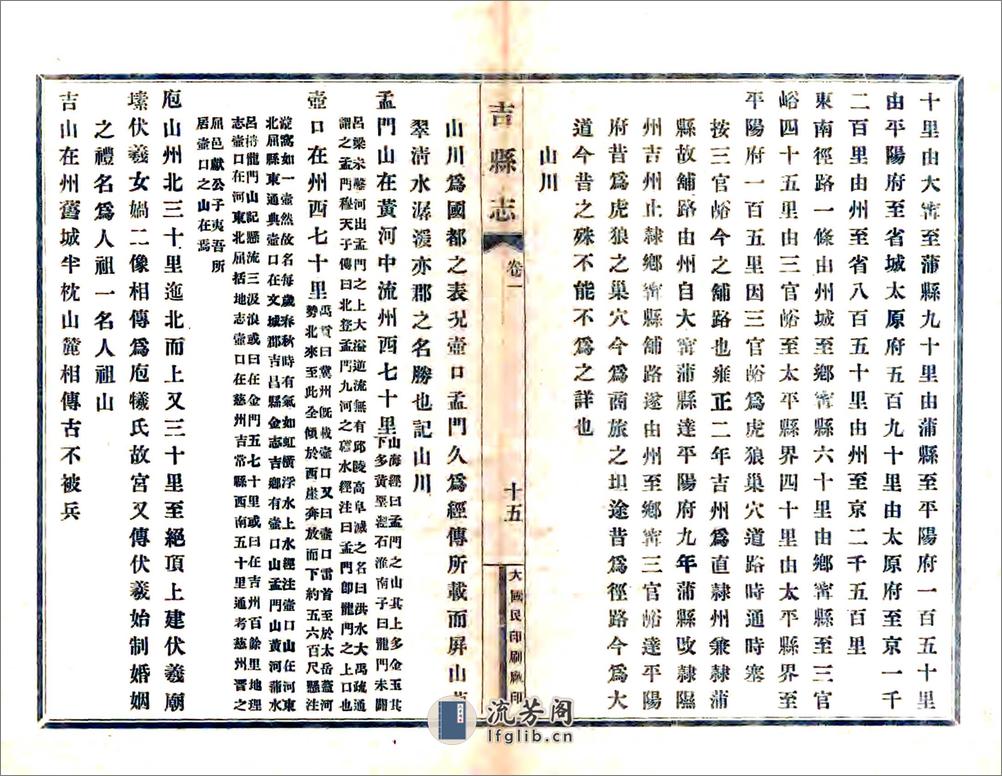 十里由大寗至蒲縣九十里由蒲縣至平陽府一百五十里
由平陽府至省城太原府五百九十里由太原府至京一千
二百里由州至省八百五十里由州至京二千五百里
東南徑路一條由州城至鄉寗縣六十里由鄉寗縣至三官
峪四十五里由三官峪至太平縣界四十里由太平縣界至
平陽府一百五里因三官峪爲虎狼巢穴道路時通時塞
按三官峪今之舖路也雍正二年吉州爲直隸州兼隸蒲
縣故舖路由州自大寗蒲縣達平陽府九年蒲縣改隸隰
州吉州止隸鄉寗縣舖路遂由州至鄉寗三官峪達平陽
府昔爲虎狼之巢穴今爲商旅之坦途昔爲徑路今爲大
道今昔之殊不能不爲之詳也
山川
吉縣志
卷一
十五
大國民印刷廠印
山川爲國都之表况壺口孟門久爲經傳所載而屏山
翠清水潺湲亦郡之名勝也記山川
孟門山在黃河中流州西七十里山海經曰孟門之山其上多金玉其
下多黃堊涅石淮南子曰龍門未闢
呂梁未鑿河出孟門之上大溢逆流無有邱陵高阜滅之名曰洪水大禹疏通
謂之孟門穆天子傳曰北登孟門九河之隥水經注曰孟門卽龍門之上口也
壺口在州西七十里禹貢曰冀州旣載壺口又曰壺口雷首至於太岳蓋河
勢北來至此全傾於西崖奔放而下約五六百尺懸注
漩窩如一壺然故名每歲春秋時有氣如虹橫浮水上水經注壺口山在河東
北屈縣東通典壺口在文城郡吉昌縣金志吉鄉有壺口山孟門山黃河蒲水
呂持龍門山記懸流三汲浪或曰在金門五七十里或曰在吉州百餘里地理
志壺口在河東北屈括地志壺口在慈州吉常縣西南五十里通考慈州晋之
屈邑獻公子夷吾所
居壺口之山在焉
庖山州北三十里迤北而上又三十里至絕頂上建伏羲廟
塐伏羲女媧二像相傳爲庖犧氏故宮又傳伏羲始制婚姻
之禮名爲人祖一名人祖山
吉山在州舊城半枕山麓相傳古不被兵
流芳阁
lfglib.cn